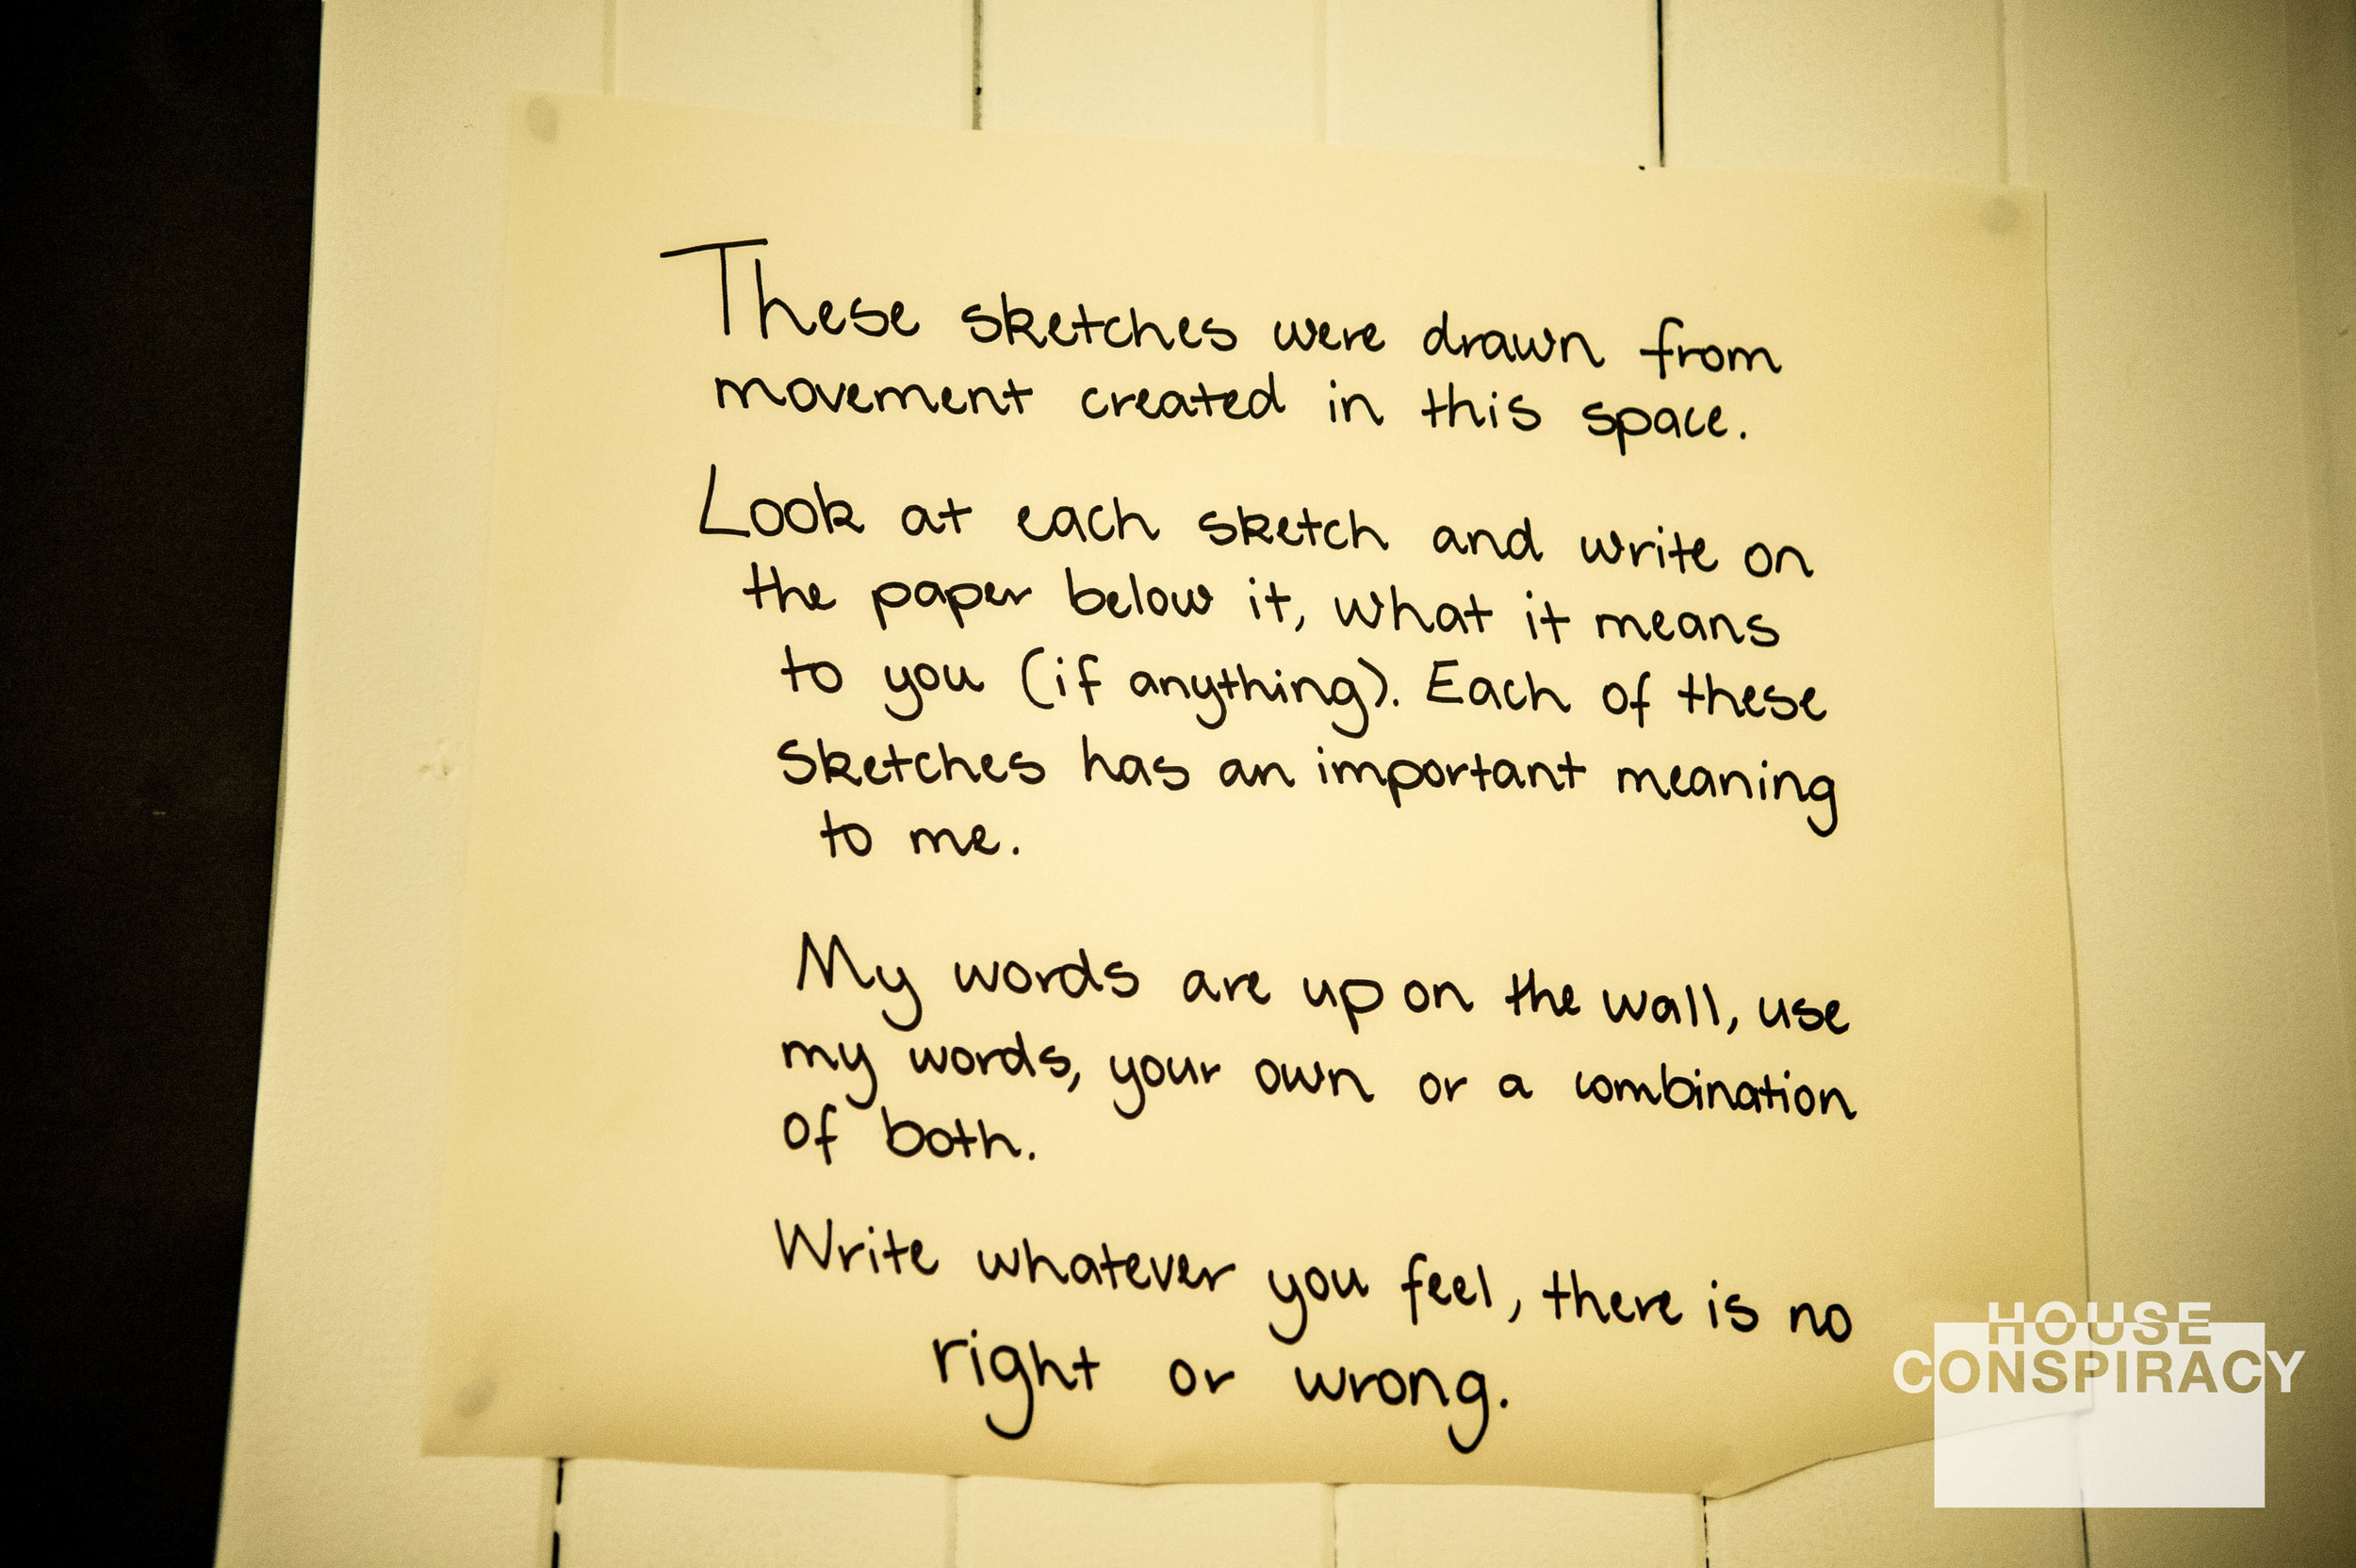 These sketches were drawn from
movement created in this space.
Look at each sketch and write on
the paper below it, what it means
to you (if anything). Each of these
sketches has an important meaning
to me.
My words are up on the wall, use
my words, your own or a combination
of both.
Write whatever you feel, there is no
right or wrong.
HOUSE
CONSPIRACY